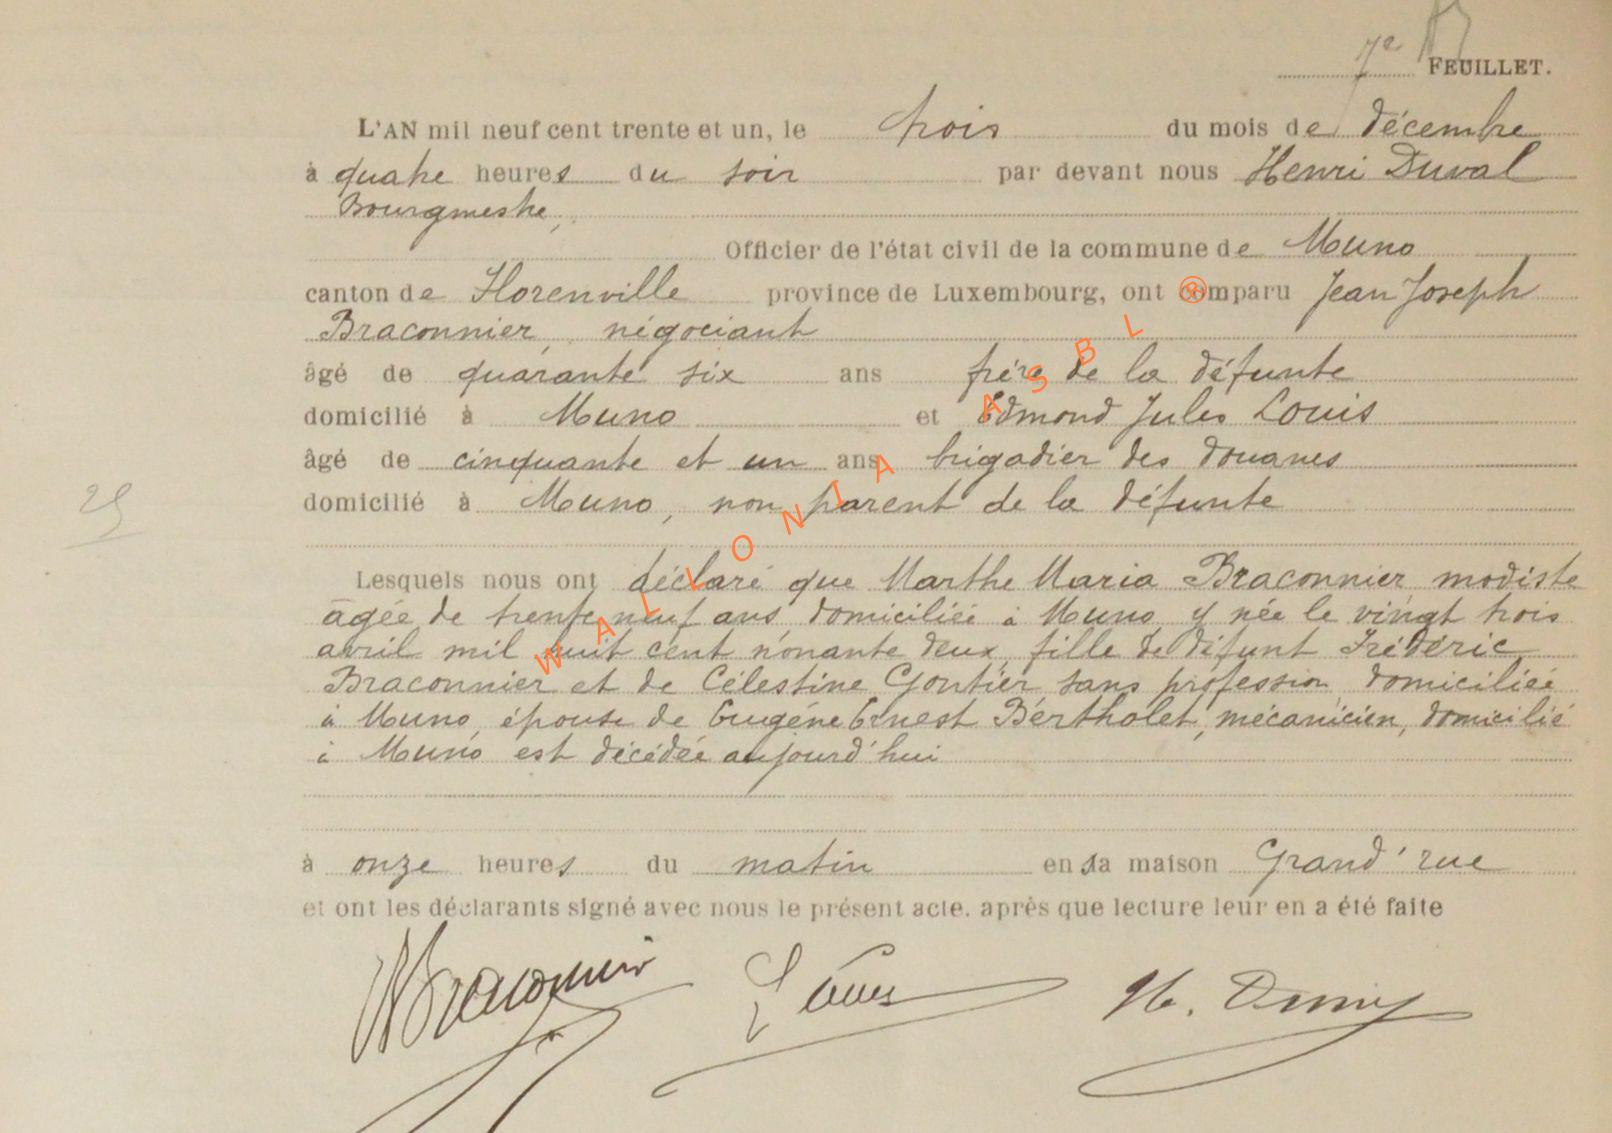 7e FEUILLET.
L'AN mil neuf cent trente et un, le trois du mois de décembre
à quatre heures du soir par devant nous Henri Duval
Bourgmestre,
Officier de l'état civil de la commune de Muno
canton de Florenville province de Luxembourg, ont comparu Jean Joseph
Braconnier, négociant
âgé de quarante six ans frère de la défunte
domicilié à Muno et Edmond Jules Louis
âgé de cinquante et un ans brigadier des douanes
domicilié à Muno, non parent de la défunte
25
Lesquels nous ont déclaré que Marthe Maria Braconnier modiste
âgée de trente neuf ans, domiciliée à Muno, y née le vingt trois
avril mil huit cent nonante deux, fille de défunt Frédéric
Braconnier et de Célestine Gontier, sans profession, domiciliée
à Muno, épouse de Eugène Ernest Bertholet, mécanicien, domicilié
à Muno est décédée aujourd'hui
à onze heures du matin en sa maison Grand'rue
et ont les déclarants signé avec nous le présent acte. après que lecture leur en a été faite
Braconnier Louis H. Duval
WALLONIA ASBL ®